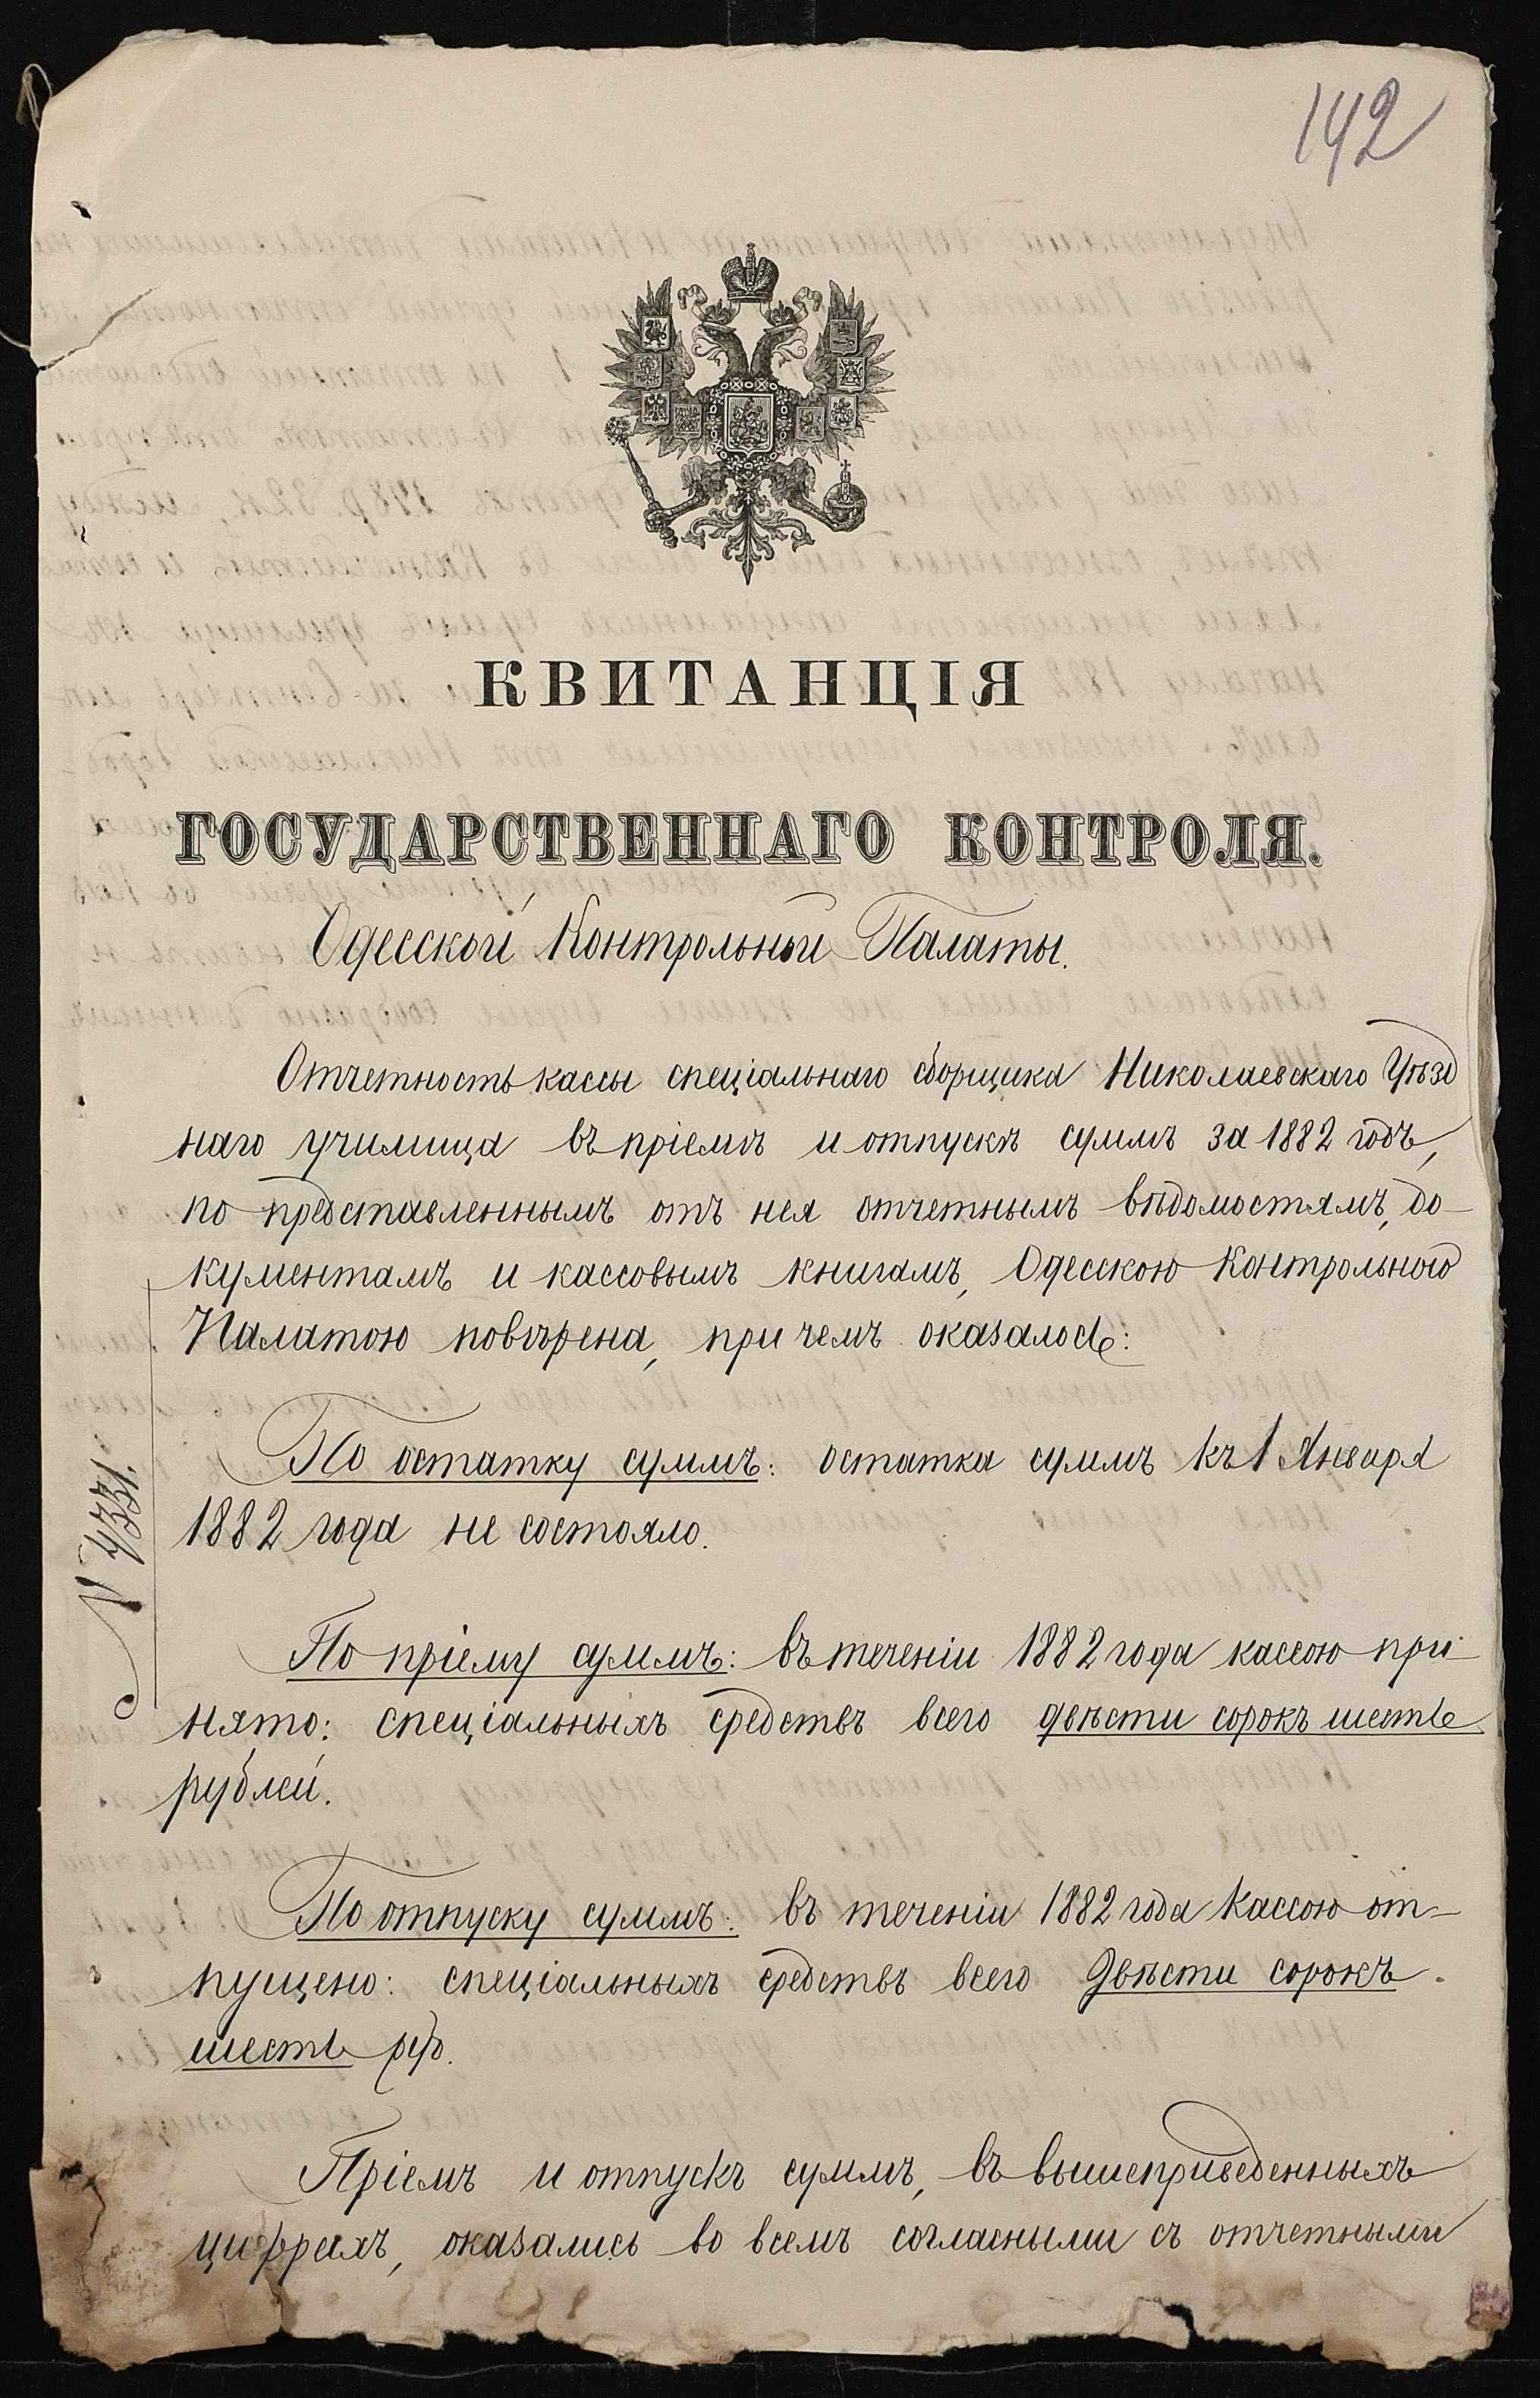 142
КВИТАНЦІЯ
ГОСУДАРСТВЕННАГО КОНТРОЛЯ.
Одесской Контрольной Палаты.
Отчетность кассы спеціальнаго сборщика Николаевскаго Уѣзд
наго училища въ пріемѣ и отпускѣ суммъ за 1882 годъ,
по представленнымъ отъ нея отчетнымъ вѣдомостямъ, до-
кументамъ и кассовымъ книгамъ, Одесскою Контрольною
Палатою повѣрена, при чемъ оказалось:
По остатку суммъ: остатка суммъ къ 1 Января
1882 года не состояло.
N 4331.
По пріему суммъ: въ теченіи 1882 года кассою при-
нято: спеціальныхъ средствъ всего двѣсти сорокъ шесть
рублей.
По отпуску суммъ: въ теченіи 1882 года кассою от-
пущено: спеціальныхъ средствъ всего двѣсти сорокъ
шесть руб.
Пріемъ и отпускъ суммъ, въ вышеприведенныхъ
цифрахъ, оказались во всемъ согласными съ отчетными